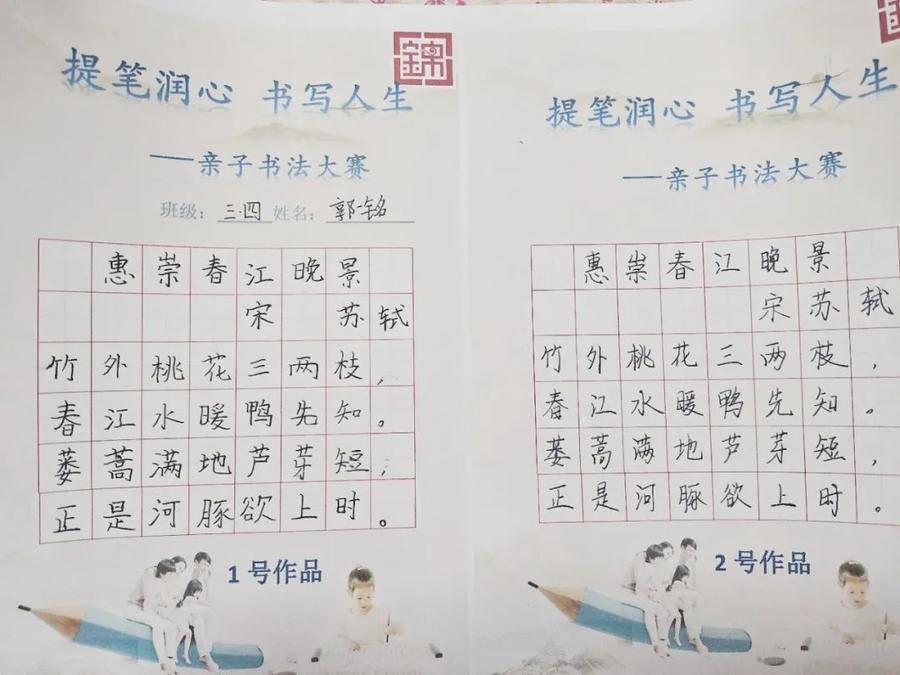 錦
提笔润心 书写人生
——亲子书法大赛
班级：三.四 姓名：郭一铭
惠崇春江晚景
宋 苏轼
竹外桃花三两枝，
春江水暖鸭先知。
蒌蒿满地芦芽短；
正是河豚欲上时。
1号作品
提笔润心 书写人生
——亲子书法大赛
惠崇春江晚景
宋苏轼
竹外桃花三两枝，
春江水暖鸭先知。
蒌蒿满地芦芽短，
正是河豚欲上时。
2号作品